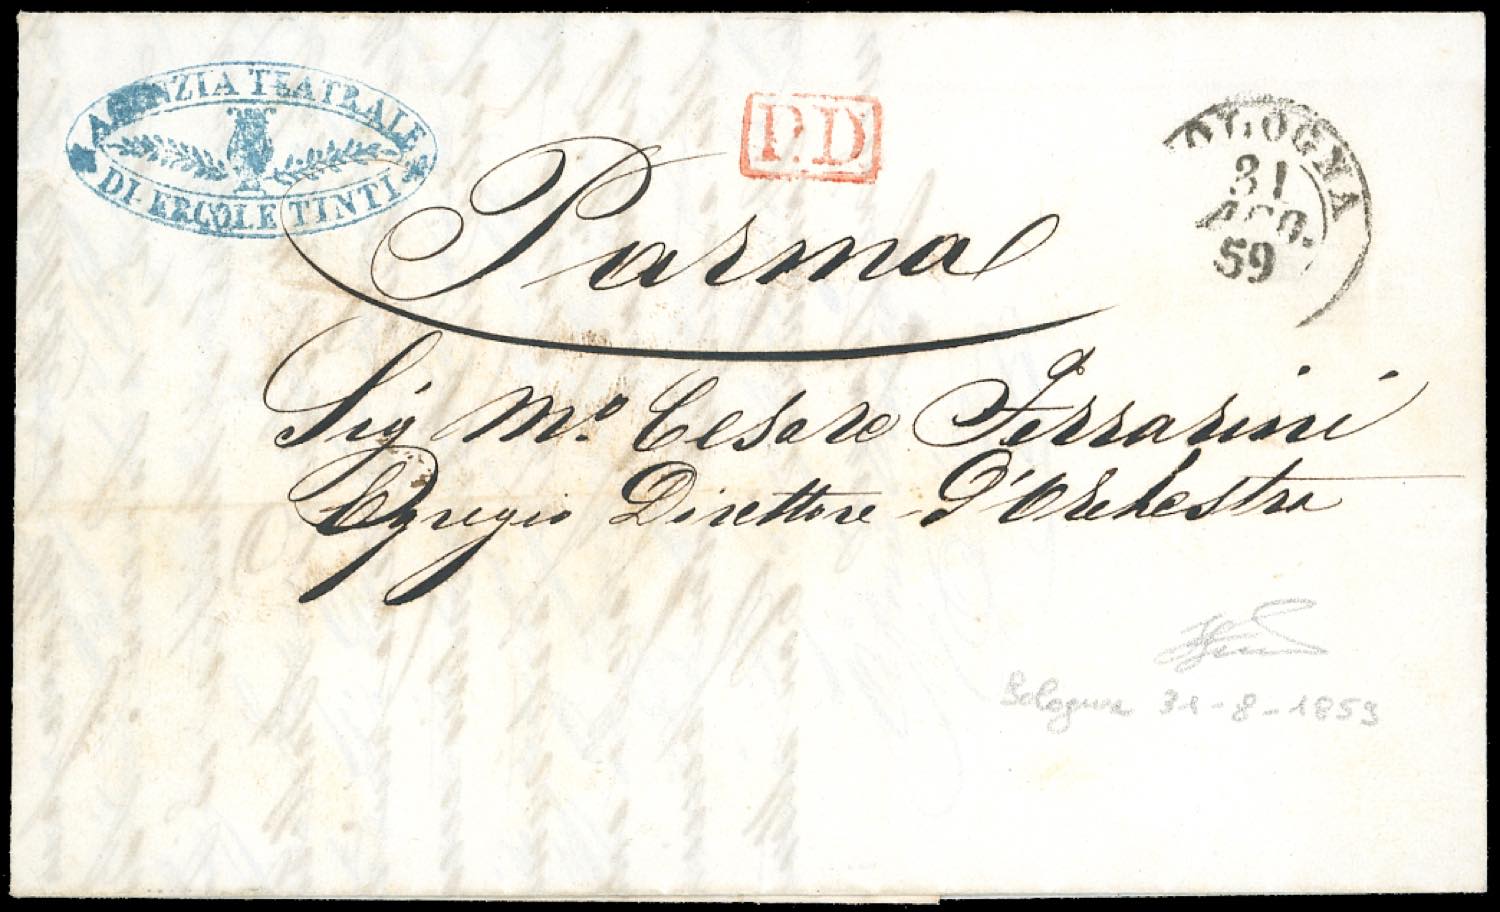 AGENZIA TEATRALE
DI ERCOLE TINTI
P.D
BOLOGNA
31
AGO.
59
Parma
Sig Mº. Cesare Ferrarini
Egregio Direttore d'Orchestra
Bologna 31-8-1859